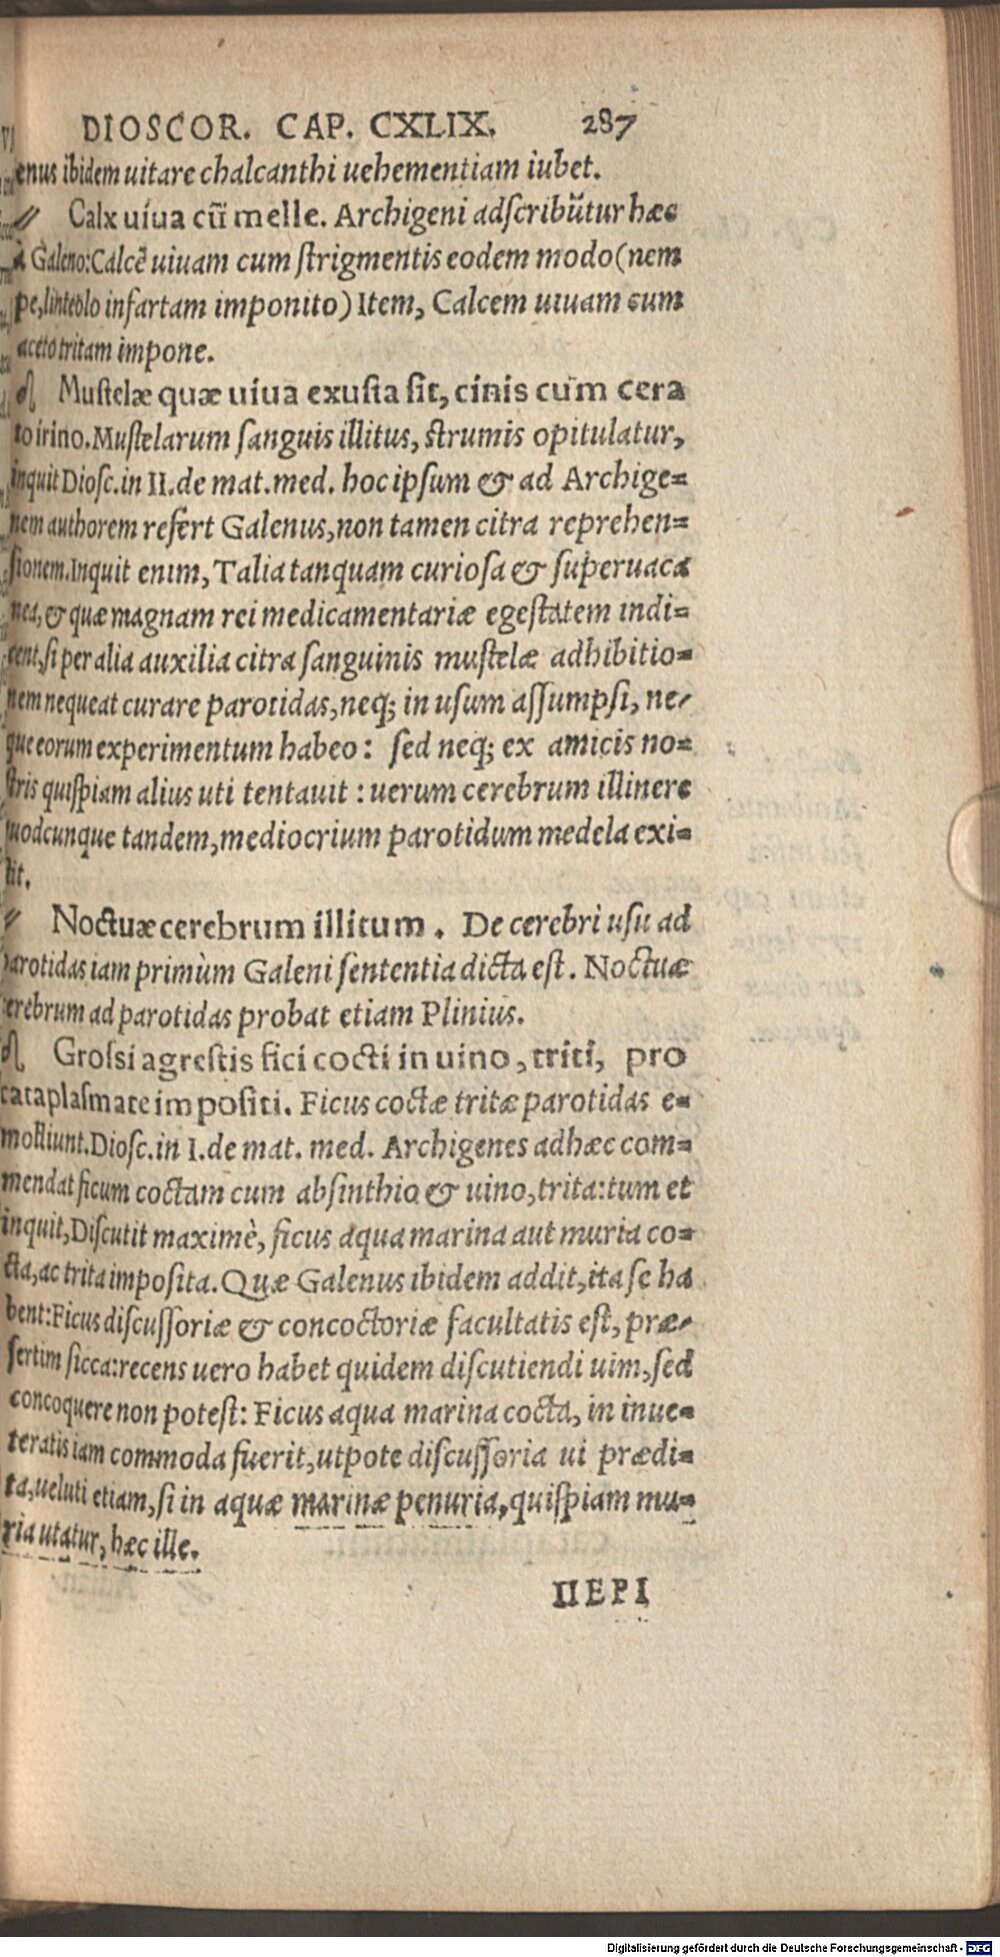 DIOSCOR. CAP. CXLIX. 287
enus ibidem uitare chalcanthi uehementiam iubet.
Calx uiua cũ melle. Archigeni adscribũtur hæc
à Galeno: Calcẽ uiuam cum strigmentis eodem modo (nem
pe, linteolo infartam imponito) Item, Calcem uiuam cum
aceto tritam impone.
Mustelæ quæ uiua exusta sit, cinis cum cera
to irino. Mustelarum sanguis illitus, strumis opitulatur,
inquit Diosc. in II. de mat. med. hoc ipsum & ad Archige=
nem authorem refert Galenus, non tamen citra reprehen=
sionem. Inquit enim, Talia tanquam curiosa & superuaca
nea, & quæ magnam rei medicamentariæ egestatem indi=
cent, si per alia auxilia citra sanguinis mustelæ adhibitio=
nem nequeat curare parotidas, neq; in usum assumpsi, ne-
que eorum experimentum habeo: sed neq; ex amicis no=
stris quispiam alius uti tentauit: uerum cerebrum illinere
quodcunque tandem, mediocrium parotidum medela exi=
stit.
Noctuæ cerebrum illitum. De cerebri usu ad
parotidas iam primùm Galeni sententia dicta est. Noctuæ
cerebrum ad parotidas probat etiam Plinius.
Grossi agrestis fici cocti in uino, triti, pro
cataplasmate impositi. Ficus coctæ tritæ parotidas e=
molliunt. Diosc. in I. de mat. med. Archigenes ad hæc com=
mendat ficum coctam cum absinthio & uino, trita: tum et
inquit, Discutit maximè, ficus aqua marina aut muria co=
cta, ac trita imposita. Quæ Galenus ibidem addit, ita se ha
bent: Ficus discussoriæ & concoctoriæ facultatis est, præ-
sertim sicca: recens uero habet quidem discutiendi uim, sed
concoquere non potest: Ficus aqua marina cocta, in inue=
teratis iam commoda fuerit, utpote discussoria ui prædi=
ta, ueluti etiam, si in aquæ marinæ penuria, quispiam mu=
ria utatur, hæc ille.
ΠΕΡΙ
Digitalisierung gefördert durch die Deutsche Forschungsgemeinschaft - DFG